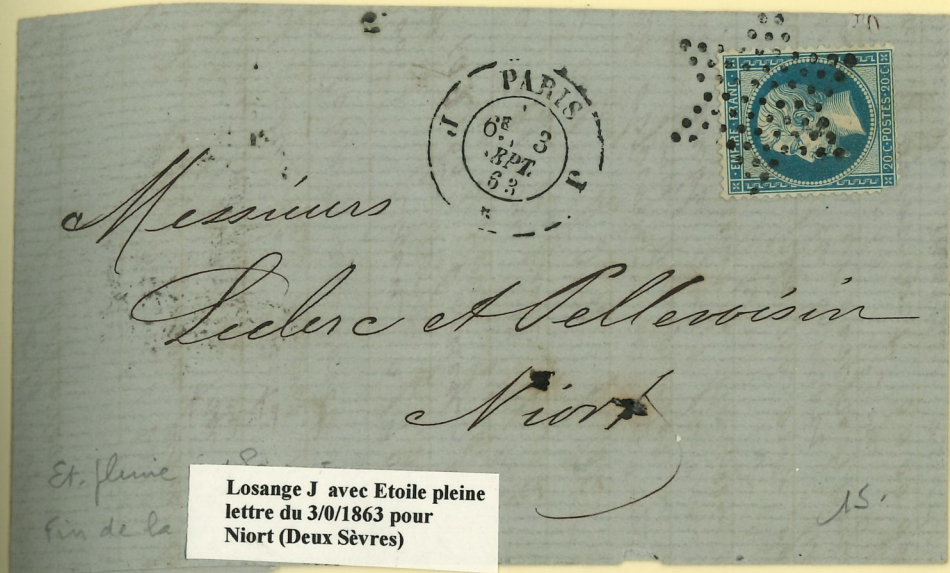 PARIS
J J
6E 3
SEPT.
63
EMPIRE FRANC
20 C POSTES 20 C
Messieurs
Leclerc et Pellevoisin
Niort
Et. pleine
Fin de la
15.
Losange J avec Etoile pleine
lettre du 3/0/1863 pour
Niort (Deux Sèvres)